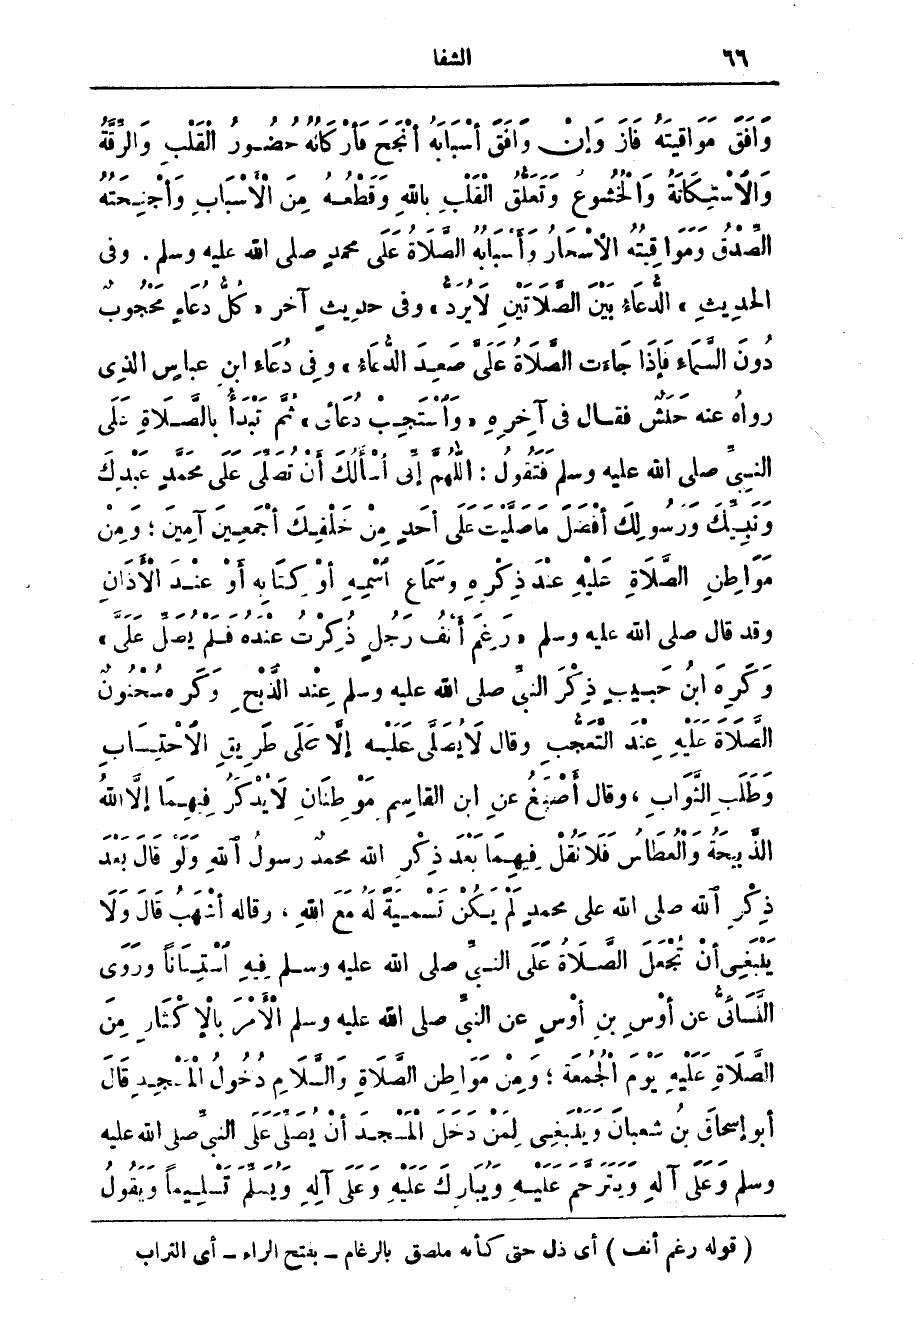 ٦٦ الشفا
وَافَقَ مَوَاقِيتَهُ فَازَ وَإِنْ وَافَقَ أَسْبَابَهُ أَنْجَحَ فَأَرْكَانُهُ حُضُورُ الْقَلْبِ وَالرِّقَّةُ
وَالاْسْتِكَانَةُ وَالْخُشُوعُ وَتَعَلُّقُ الْقَلْبِ بِاللهِ وَقَطْعُهُ مِنَ الْأَسْبَابِ وَأَجْنِحَتُهُ
الصِّدْقُ وَمَوَاقِيتُهُ الْأَسْحَارُ وَأَسْبَابُهُ الصَّلَاةُ عَلَى محمدٍ صلى الله عليه وسلم . وفى
الحديثِ « الدُّعَاءُ بَيْنَ الصَّلَاتَيْنِ لَا يُرَدُّ » وفى حديثٍ آخر « كُلُّ دُعَاءٍ مَحْجُوبٌ
دُونَ السَّمَاءِ فَإِذَا جَاءَت الصَّلَاةُ عَلَىَّ صَعِدَ الدُّعَاءُ » وفى دُعَاءِ ابنِ عباسٍ الذى
رواهُ عنه حَنَشٌ فقال فى آخِرِهِ « وَاْسْتَجِبْ دُعَائِى » ثُمَّ تَبْدَأُ بالصَّلَاةِ عَلَى
النبىِّ صلى الله عليه وسلم فَتَقُولُ : اللّهُمَّ إِنِّى أَسْأَلُكَ أَنْ تُصَلِّىَ عَلَى مُحَمَّدٍ عَبْدِكَ
وَنَبِيِّكَ وَرَسُولِكَ أَفْضَلَ مَاصَلَّيْتَ عَلَى أَحَدٍ مِنْ خَلْقِكَ أَجْمَعِينَ آمِينَ ؛ وَمِنْ
مَوَاطِنِ الصَّلَاةِ عَلَيْهِ عِنْدَ ذِكْرِهِ وسَمَاعِ اْسْمِهِ أَوْ كِتَابِهِ أَوْ عِنْدَ الْأَذَانِ
وقد قال صلى الله عليه وسلم « رَغِمَ أَنْفُ رَجُلٍ ذُكِرْتُ عِنْدَهُ فَلَمْ يُصَلِّ عَلَىَّ »
وَكَرِهَ ابنُ حَبِيبٍ ذِكْرَ النبىِّ صلى الله عليه وسلم عِنْدَ الذَّبْحِ وَكَرِهَ سُحْنُونٌ
الصَّلَاةَ عَلَيْهِ عِنْدَ التَّعَجُّبِ وقال لَايُصَلَّى عَلَيْهِ إِلَّا عَلَى طَرِيقِ الاحْتِسَابِ
وَطَلَبِ الثَّوَابِ ، وقال أَصْبَغُ عنِ ابنِ القاسِمِ مَوْطِنَانِ لَايُذْكَرُ فِيهِمَا إِلَّا اللهُ
الذَّبِيحَةُ وَالْعُطَاسُ فَلَا تَقُلْ فِيهِمَا بَعْدَ ذِكْرِ الله محمدٌ رسولُ اللهِ وَلَوْ قالَ بَعْدَ
ذِكْرِ اللهِ صلى الله على محمدٍ لَمْ يَكُنْ تَسْمِيَةً لَهُ مَعَ اللهِ ، وقاله أَشْهَبُ قَالَ وَلَا
يَنْبَغِى أَنْ تُجْعَلَ الصَّلَاةُ عَلَى النبىِّ صلى الله عليه وسلم فِيهِ اْسْتِنَاناً ورَوَى
النَّسَائِىُّ عن أَوْسِ بنِ أَوْسٍ عن النبىِّ صلى الله عليه وسلم الْأَمْرَ بالْإِكْثَارِ مِنَ
الصَّلَاةِ عَلَيْهِ يَوْمَ الْجُمُعَةِ ؛ وَمِنْ مَوَاطِنِ الصَّلَاةِ وَالسَّلَامِ دُخُولُ الْمَسْجِدِ قَالَ
أبو إِسحاقَ بنُ شعبانَ وَيَنْبَغِى لِمَنْ دَخَلَ الْمَسْجِدَ أَنْ يُصَلِّىَ عَلَى النبىِّ صلى الله عليه
وسلم وَعَلَى آلِهِ وَيَتَرَحَّمَ عَلَيْهِ وَيُبَارِكَ عَلَيْهِ وَعَلَى آلِهِ وَيُسَلِّمَ تَسْلِيماً وَيَقُولُ
( قوله رغم أنف ) أى ذل حتى كأنه ملصق بالرغام ــ بفتح الراء ــ أى التراب